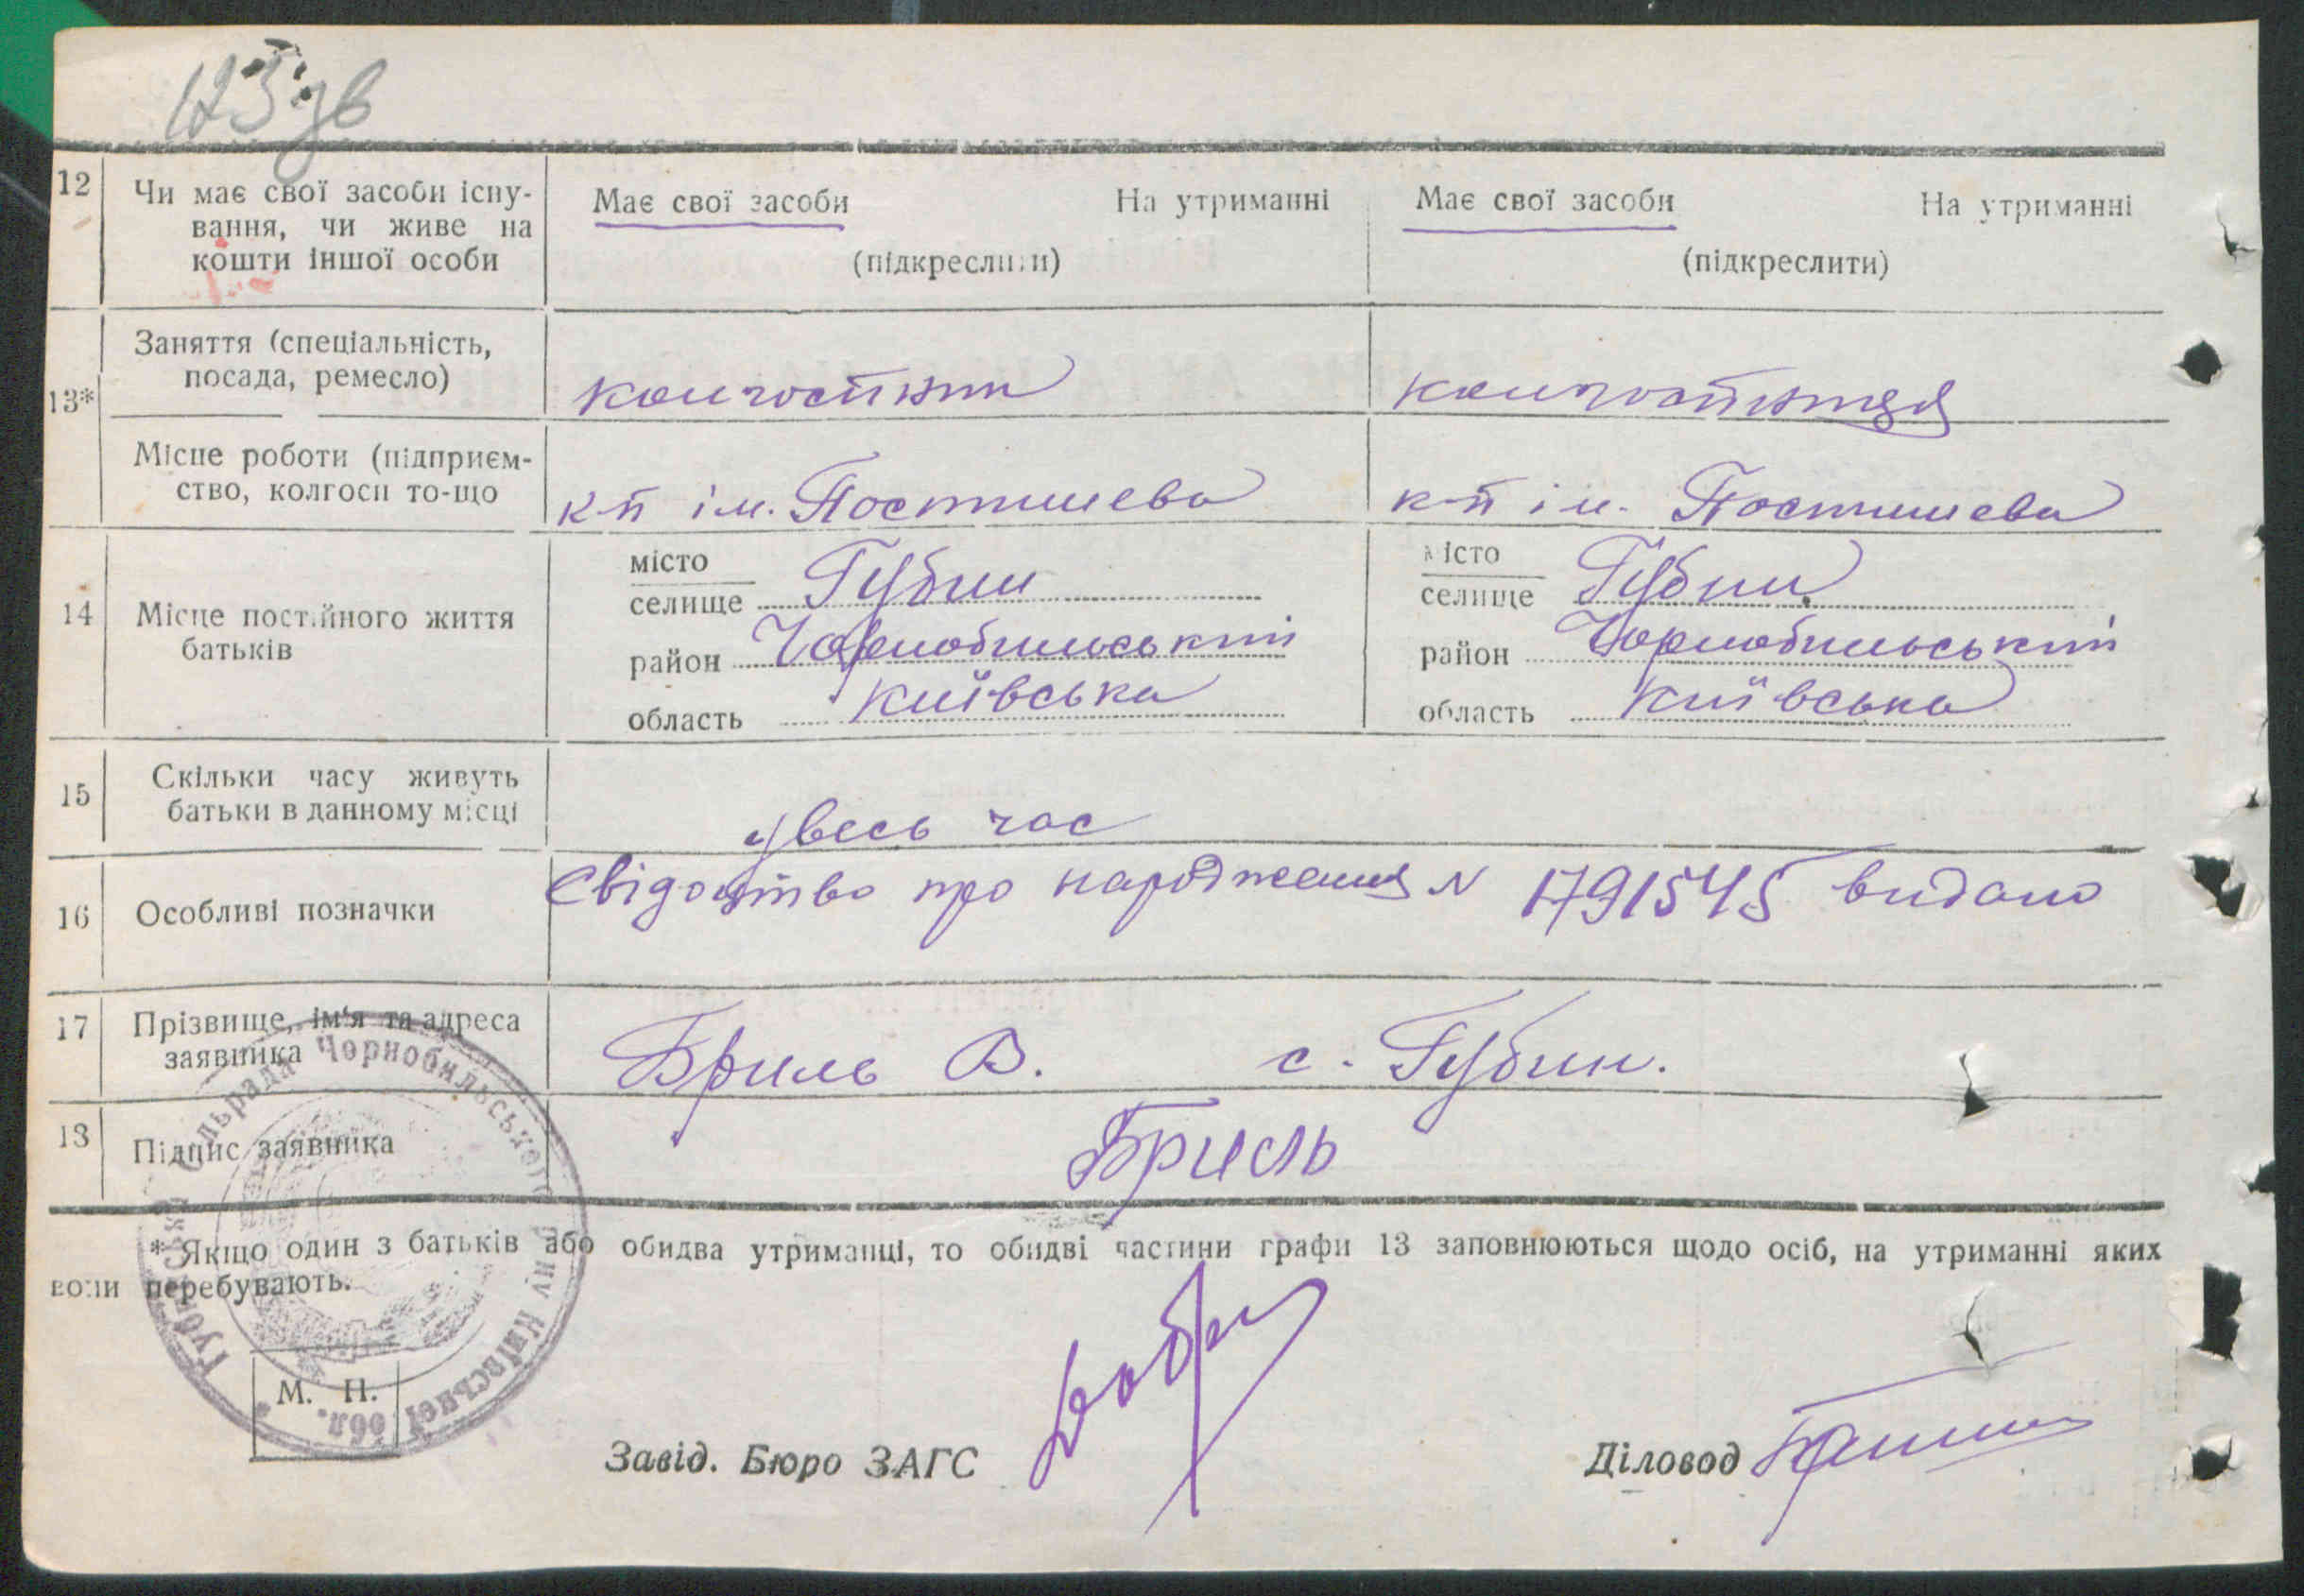 123 зв
12 Чи має свої засоби існу- Має свої засоби На утриманні Має свої засоби На утриманні
вання, чи живе на
кошти іншої особи (підкреслити) (підкреслити)
Заняття (спеціальність,
посада, ремесло) колгоспник колгоспниця
13*
Місце роботи (підприєм-
ство, колгосп то-що к-п ім. Постишева к-п ім. Постишева
місто місто
селище Губин селище Губин
14 Місце постійного життя
батьків район Чорнобильський район Чорнобильський
область Київська область Київська
15 Скільки часу живуть
батьки в данному місці увесь час
16 Особливі позначки Свідоцтво про народження N 1791545 видано
17 Прізвище, ім'я та адреса
заявника Бриль В. с. Губин.
13 Підпис заявника Бриль
* Якщо один з батьків або обидва утриманці, то обидві частини графи 13 заповнюються щодо осіб, на утриманні яких
вони перебувають.
М. П.
Завід. Бюро ЗАГС Діловод
Губинська Сільрада Чорнобильського р-ну Київської обл.